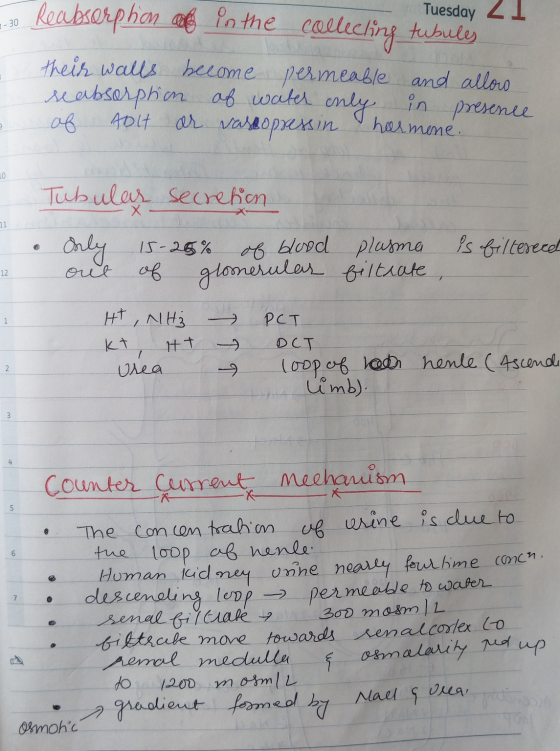 Tuesday 21
- 30 Reabsorption of in the collecting tubules
their walls become permeable and allow
reabsorption of water only in presence
of ADH or vasopressin hormone.
10
Tubular secretion
11
• Only 15-25% of blood plasma is filtereed
12
out of glomerular filtrate.
1
H+, NH3 → PCT
K+, H+ → DCT
2
Urea → loop of henle (Ascend
limb).
3
4
Counter Current Mechanism
5
• The concentration of urine is due to
6
the loop of henle.
• Human kidney urine nearly four time concn.
7
• descending loop → permeable to water
• renal filtrate → 300 mosm/L
• filtrate move towards renal cortex to
renal medulla & osmalarity up
to 1200 m osm/L
• gradient formed by Nacl & Urea.
osmotic →